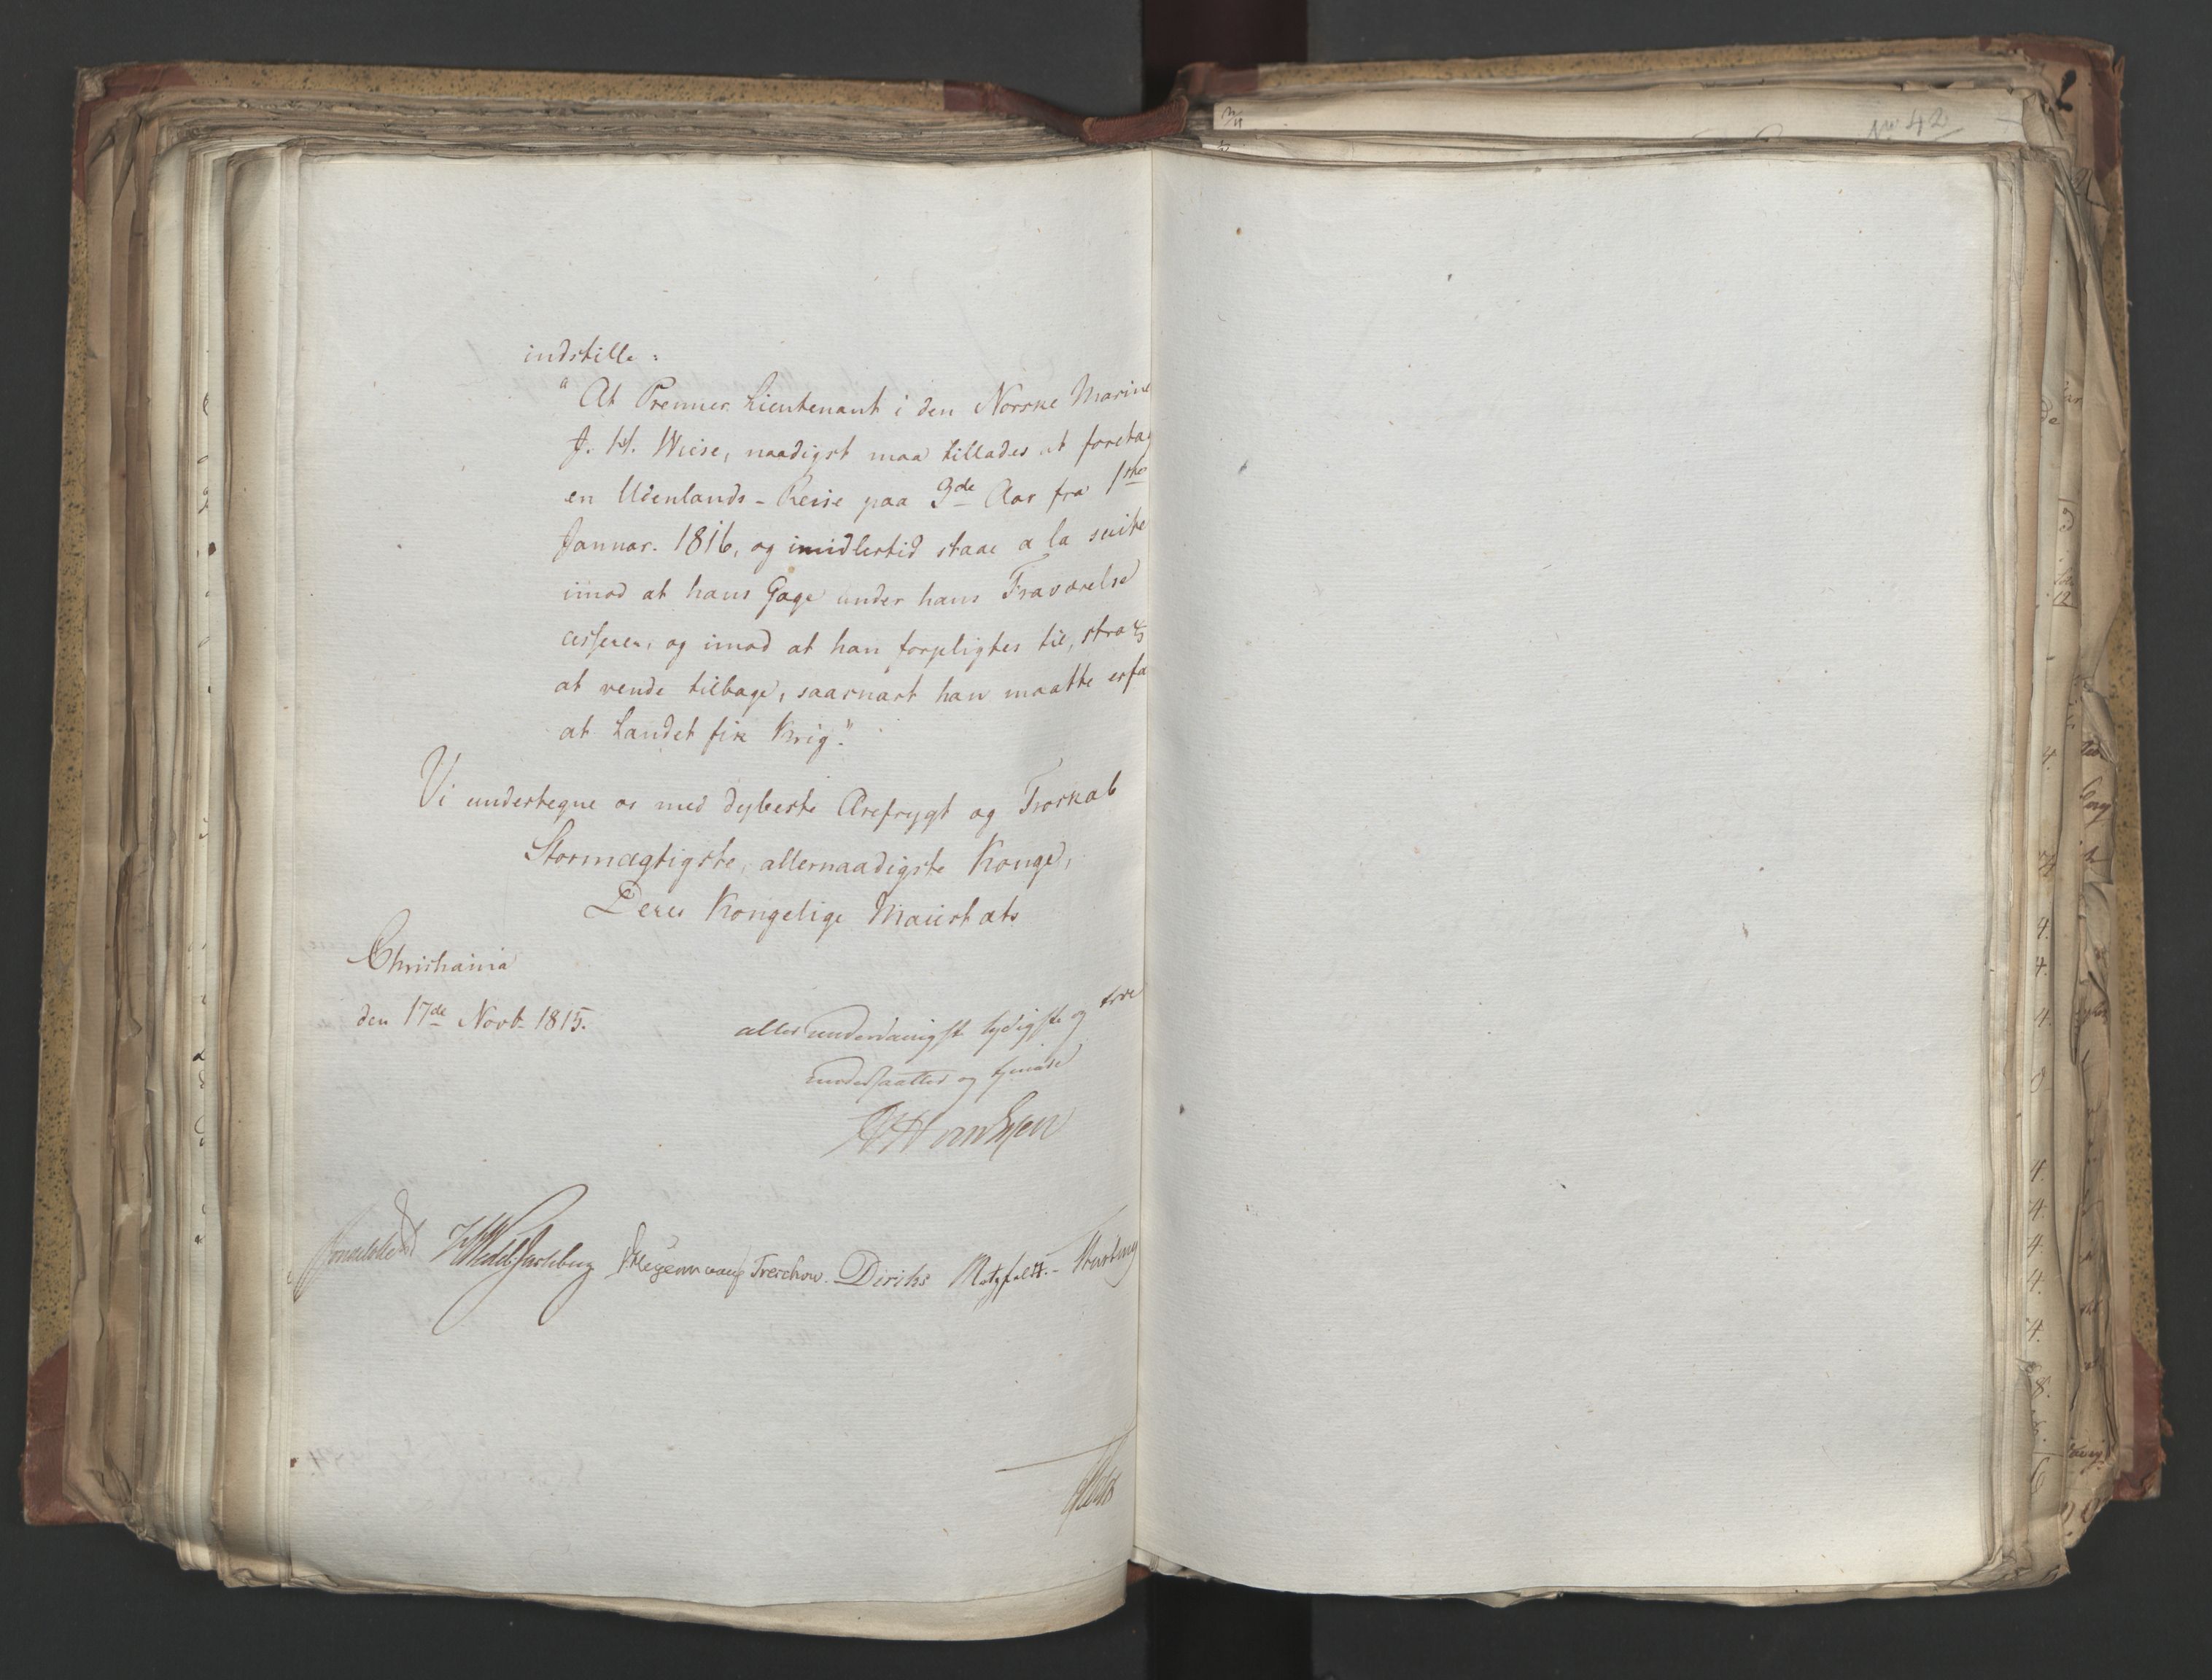 No 42
indstille:
"At Premier Lieutenant i den Norske Marine
J. H. Wiese, naadigst maa tillades at foretag
en Udenlands-Reise paa 3de Aar fra 1ste
Januar. 1816, og imidlertid staae a la suite
imod at hans Gage under hans Fraværelse
cesserer, og imod at han forpligtes til, strax
at vende tilbage, saasnart han maatte erfa
at Landet fik Krig."
Vi undertegne os med dybeste Ærefrygt og Troskab
Stormægtigste, allernaadigste Konge,
Deres Kongelige Maiestæts
Christiania
den 17de Novb. 1815.
allerunderdanigste lydigste og troe
undersaatter og tjenere
Wedel-Jarlsberg Treschow. Diriks Motzfeldt.